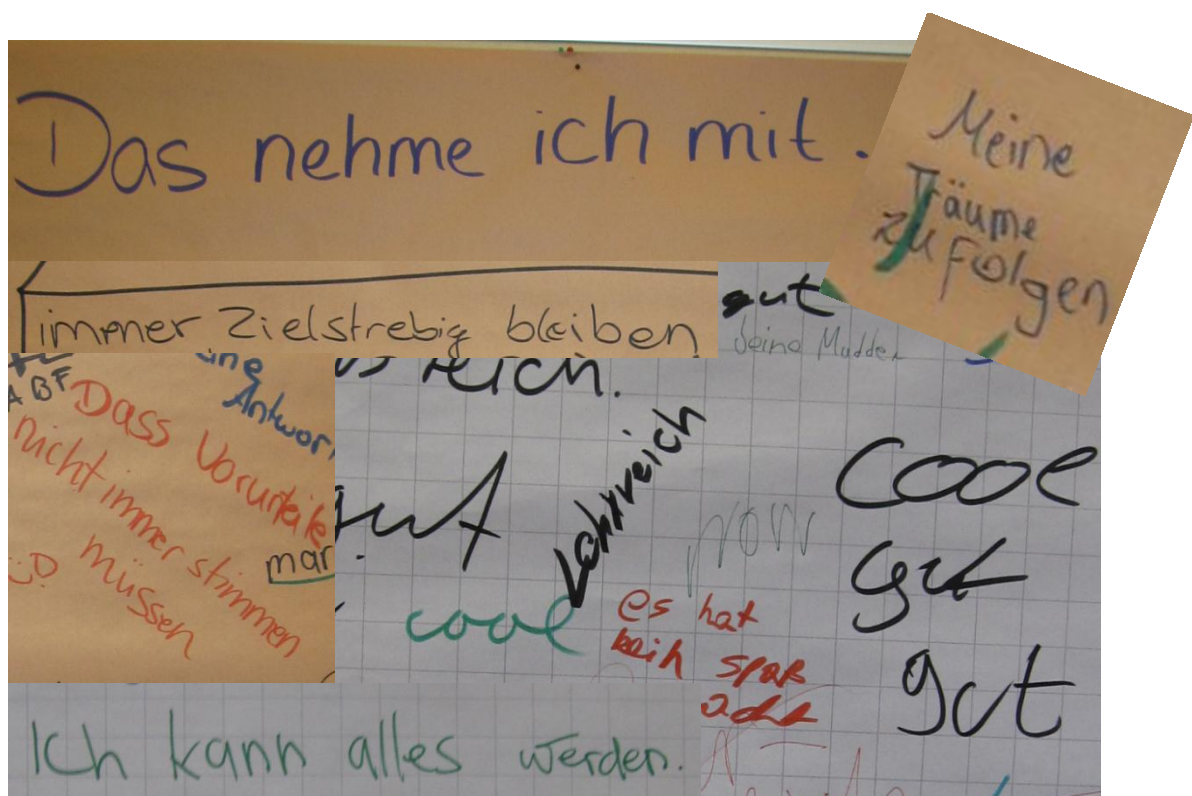 Das nehme ich mit.
Meine
Träume
zu folgen
immer Zielstrebig bleiben
gut
deine Mudder
ABF
Antwor
Dass Vorurteile
nicht immer stimmen
müssen
:D
mar
reich.
gut
Lehrreich
wow
cool
es hat
kein spaß
cool
gut
gut
Ich kann alles werden.